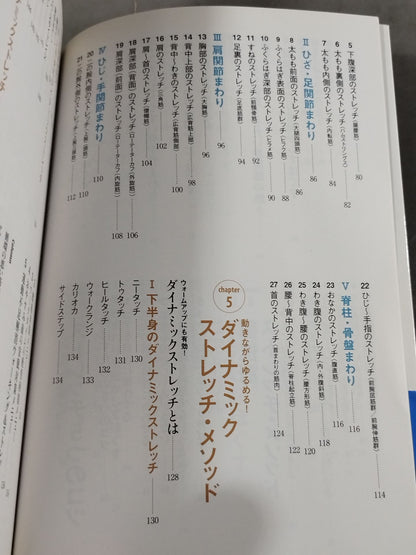 5 下腹深部のストレッチ(腸腰筋) 82
Ⅱ ひざ・足関節まわり
6 太もも裏側のストレッチ(ハムストリングス)
7 太もも内側のストレッチ(内転筋)
8 太もも前面のストレッチ(大腿四頭筋) 86
9 ふくらはぎ表面のストレッチ(ヒフク筋) 88
10 ふくらはぎ深部のストレッチ(ヒラメ筋) 90
11 すねのストレッチ(前脛骨筋) 92
12 足裏のストレッチ(足底筋群) 94
Ⅲ 肩関節まわり
13 胸部のストレッチ(大胸筋) 96
14 背中上部のストレッチ(広背筋上部) 98
15 背中〜わきのストレッチ(広背筋側部) 100
16 肩のストレッチ(三角筋) 102
17 肩〜首のストレッチ(僧帽筋) 104
18 肩深部(背面)のストレッチ(ローテーターカフ/外旋筋) 106
19 肩深部(前面)のストレッチ(ローテーターカフ/内旋筋) 108
Ⅳ ひじ・手関節まわり
20 二の腕内側のストレッチ 110
21 二の腕外側のストレッチ 112
22 ひじ〜手指のストレッチ(前腕屈筋群/前腕伸筋群) 114
Ⅴ 脊柱・骨盤まわり
23 おなかのストレッチ(腹直筋) 116
24 わき腹のストレッチ(内・外腹斜筋) 118
25 わき腹〜腰のストレッチ(腰方形筋) 120
26 腰〜背中のストレッチ(脊柱起立筋) 122
27 首のストレッチ(首まわりの筋肉) 124
chapter 5
動きながらゆるめる!
ダイナミック
ストレッチ・メソッド
ウォームアップにも有効!
ダイナミックストレッチとは 128
Ⅰ 下半身のダイナミックストレッチ 130
ニータッチ 130
トゥタッチ 131
ヒールタッチ 132
ウォークランジ
カリオカ 134
サイドステップ 134